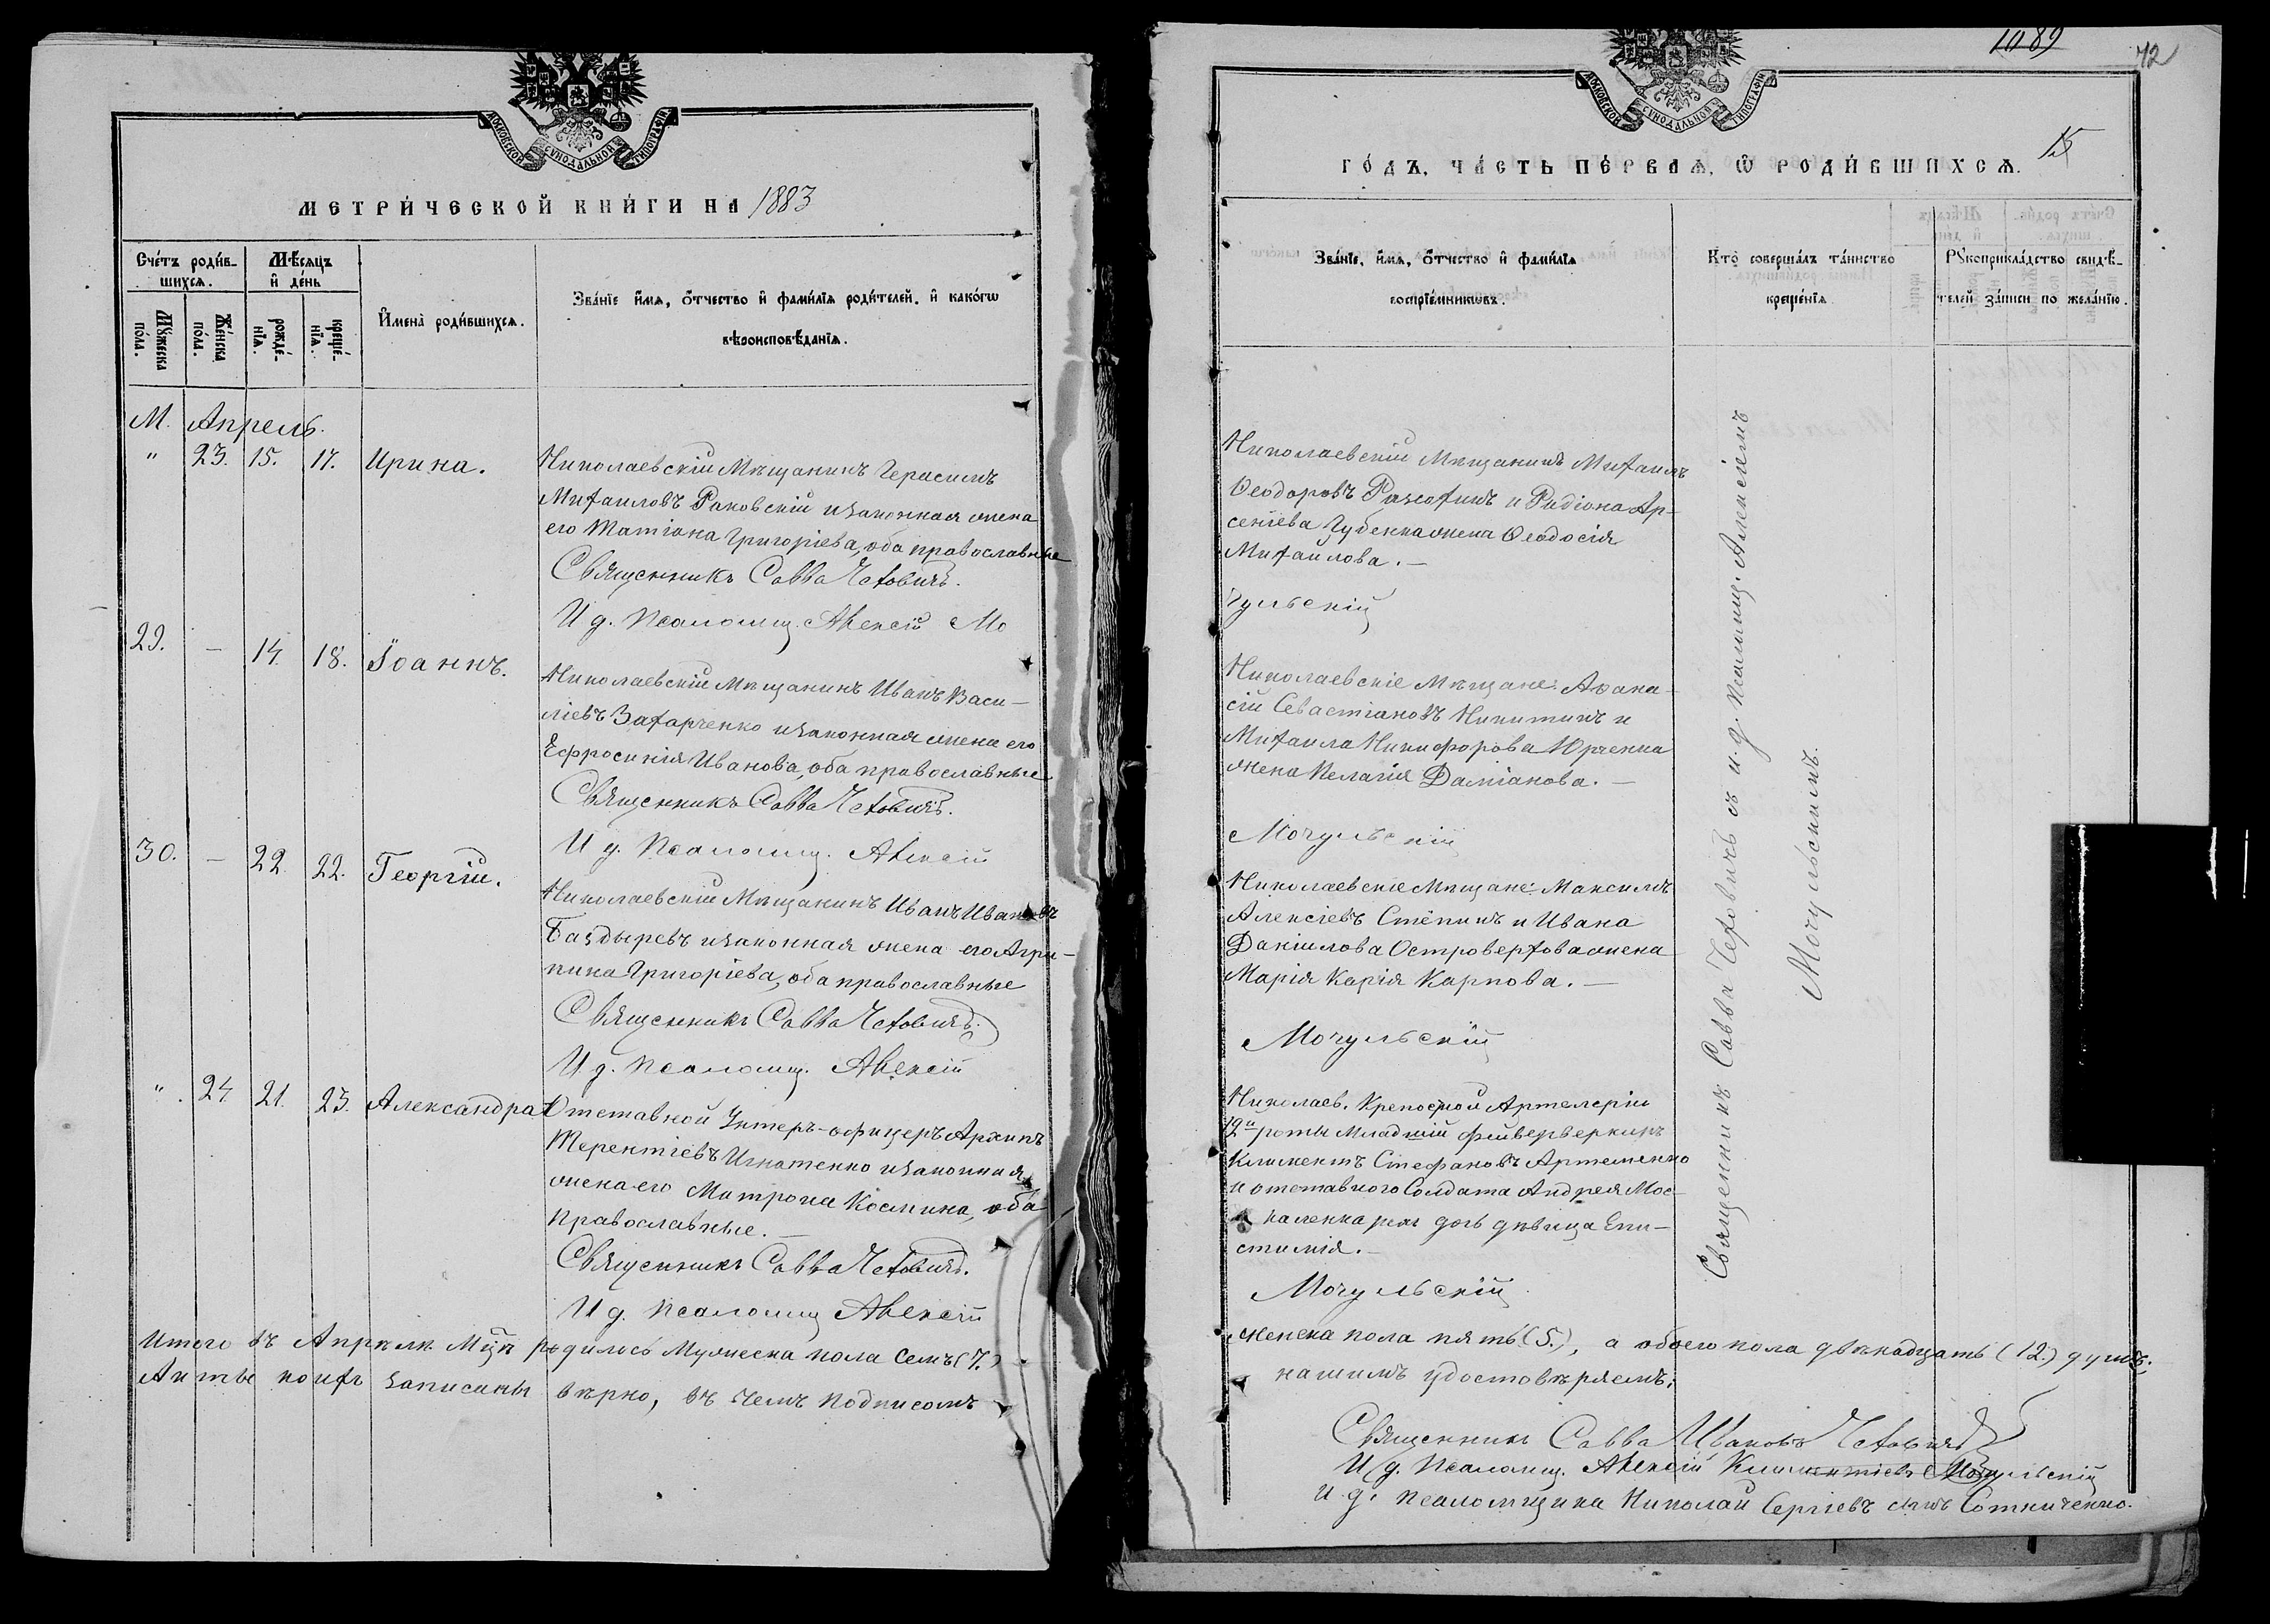 МОСКОВСКОЙ СѴНОДАЛЬНОЙ ТИПОГРАФІИ
МЕТРИ́ЧЕСКОЙ КНИ́ГИ НА 1883
Сче́тъ роди́в-
шихсѧ.
Мѣ́сѧцъ
и҆ де́нь
Мꙋ́жеска
по́ла.
Же́нска
по́ла.
рожде́-
нїѧ.
креще́-
нїѧ.
И҆мена̀ роди́вшихсѧ.
Зва́нїе и҆́мѧ, ѻ҆́тчество и҆ фами́лїѧ роди́телей, и҆ како́гѡ
вѣроисповѣ́данїѧ.
М. Апрель.
" 23. 15. 17. Ирина.
Николаевскій Мѣщанинъ Герасимъ
Михаиловъ Раковскій и законная жена
его Татіана Григоріева, оба православные
Священникъ Савва Чеховичъ.
И д. Псаломщ. Алексій Мо
29. — 14. 18. Іоаннъ.
Николаевскій Мѣщанинъ Иванъ Васи-
ліевъ Захарченко и законная жена его
Ефросинія Иванова, оба православные
Священникъ Савва Чеховичъ.
И д. Псаломщ. Алексій
30. — 22. 22. Георгій.
Николаевскій Мѣщанинъ Иванъ Ивановъ
Баздыревъ и законная жена его Агри-
пина Григоріева, оба православные
Священникъ Савва Чеховичъ.
И д. Псаломщ. Алексій
" 24. 21. 23. Александра
Отставной Унтеръ-офицеръ Архипъ
Терентіевъ Игнатенко и законная
жена его Матрона Космина, оба
православные. —
Священникъ Савва Чеховичъ.
И д. Псаломщ Алексій
Итого въ Апрѣлѣ Мцѣ родилось Мужеска пола семь (7.)
Акты коихъ записаны вѣрно, въ чемъ подписомъ
1089
72
МОСКОВСКОЙ СѴНОДАЛЬНОЙ ТИПОГРАФІИ
ГО́ДЪ, ЧА́СТЬ ПЕ́РВАѦ, Ѽ РОДИ́ВШИХСѦ. 15
Зва́нїе, и҆́мѧ, ѻ҆́тчество и҆ фами́лїѧ
воспрїе́мникѡвъ.
Кто̀ соверша́лъ та́инство
креще́нїѧ
Рꙋкоприкла́дство свидѣ́-
телей за́писи по жела́нїю.
Николаевскій Мѣщанинъ Михаилъ
Ѳеодоровъ и Радіона Ар-
сеніева Губенка жена Ѳеодосія
Михайлова. —
чульскій
Николаевскіе Мѣщане: Аѳана-
сій Севастіановъ Никитинъ и
Михаила Никифорова Юрченка
жена Пелагія Даміанова. —
Мочульскій
Николаевскіе Мѣщане: Максимъ
Алексіевъ Стёпинъ и Ивана
Даніилова Островерхова жена
Марія Карія Карпова. —
Мочульскій
Николаев. Крепостной Артелеріи
12й роты Младшій фейверверкиръ
Климентъ Стефановъ Артеменко
и отставного Солдата Андрея Мос-
каленка дѣвица Епи-
стимія. —
Мочульскій
Священникъ Савва Чеховичъ съ и. д. Псаломщ. Алексіемъ
Мочульскимъ.
женска пола пять (5.), а обоего пола двѣнадцать (12.) душъ.
нашимъ удостовѣряемъ:
Священникъ Савва Ивановъ Чеховичъ
И. д. Псаломщ. Алексій Климентіевъ Мочульскій
И. д. псаломщика Николай Сергіевъ сынъ Сотниченко.